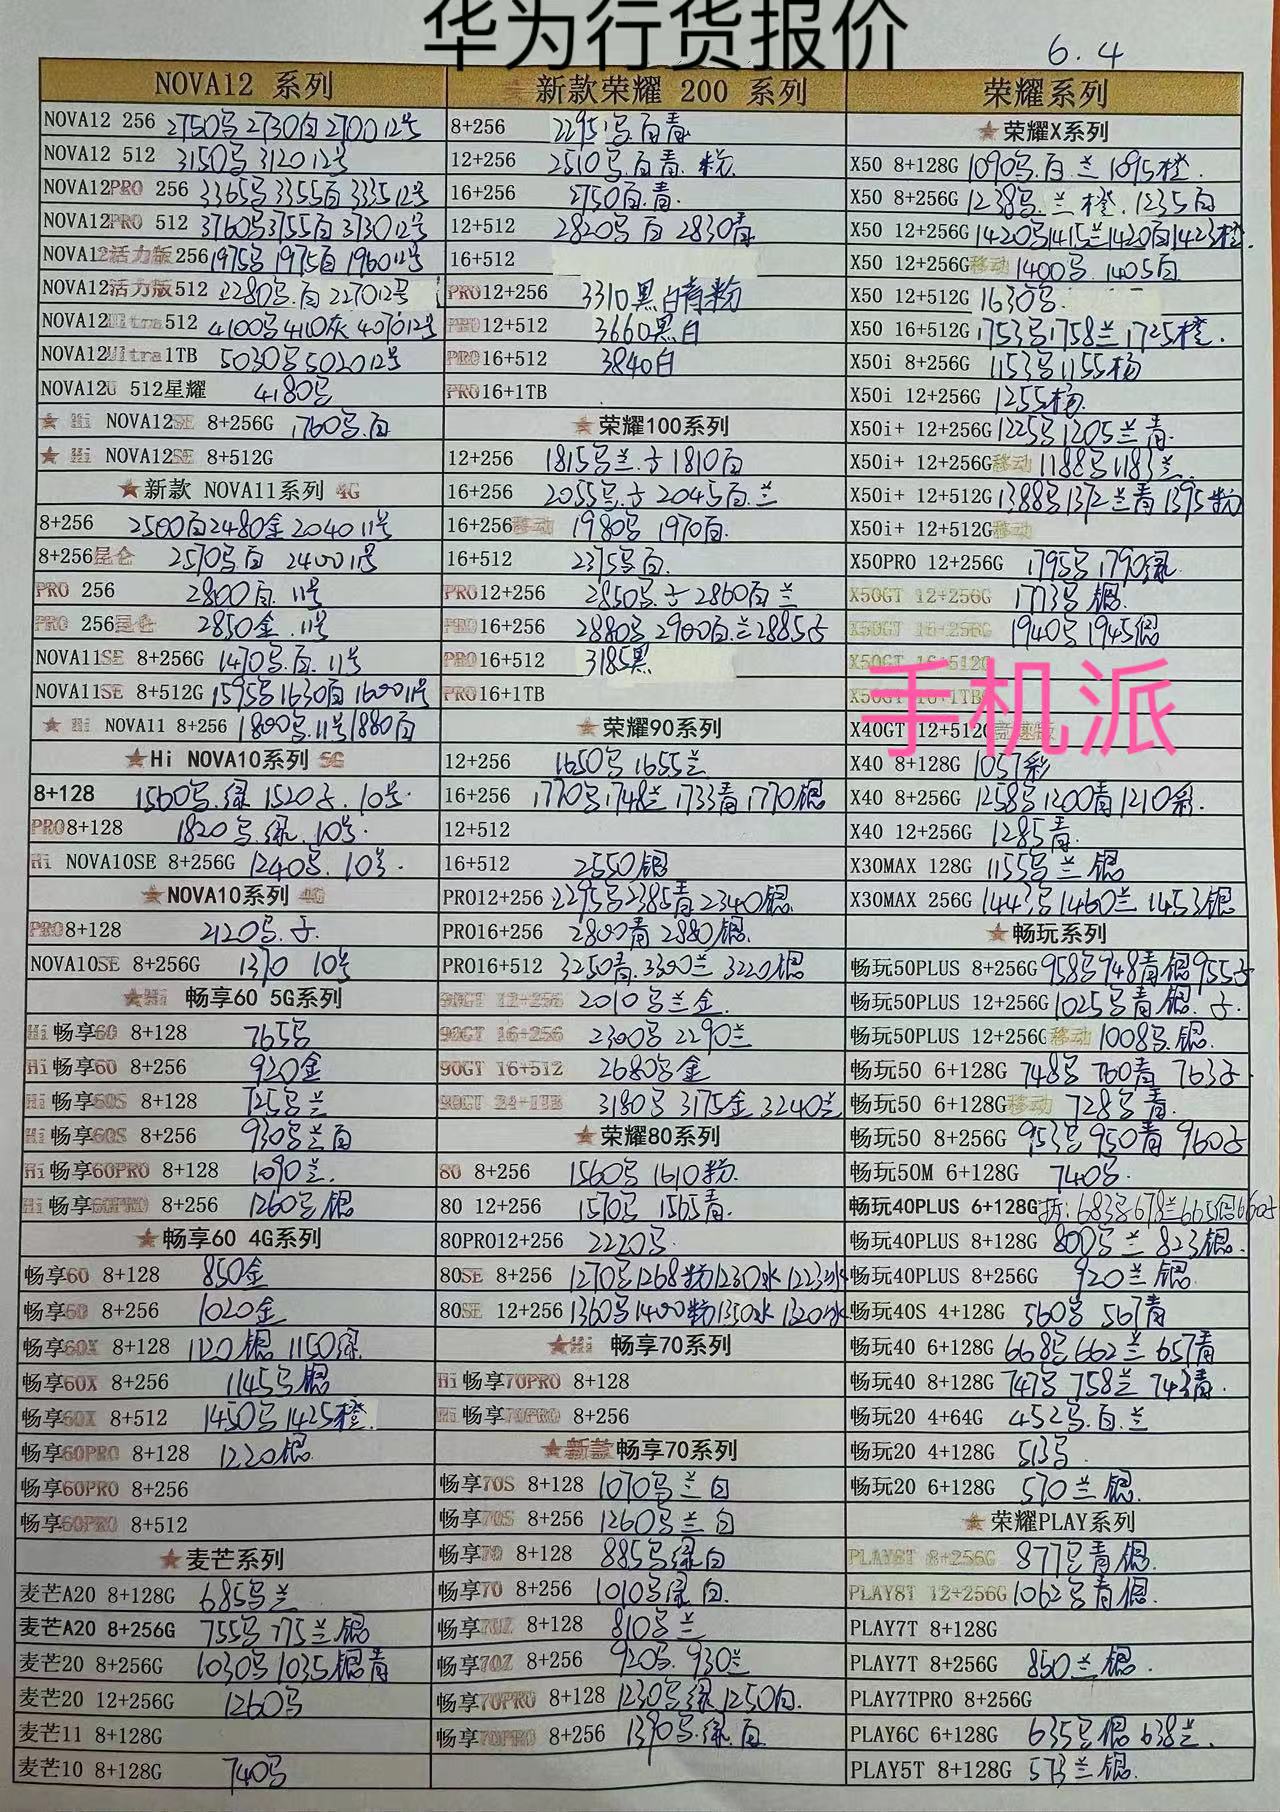 华为行货报价
6.4
NOVA12 系列
NOVA12 256 2750 2730白 2700 12号
NOVA12 512 3150 3120 12号
NOVA12PRO 256 3365 3355白 3335 12号
NOVA12PRO 512 3760 3755白 3730 12号
NOVA12活力版256 1975 1975白 1960 12号
NOVA12活力版512 2280 白 2270 12号
NOVA12Ultra512 4100 4110灰 4070 12号
NOVA12Ultra1TB 5030 5020 12号
NOVA12U 512星耀 4180
★ Hi NOVA12SE 8+256G 1760 白
★ Hi NOVA12SE 8+512G
★新款 NOVA11系列 4G
8+256 2500白 2480金 2040 11号
8+256昆仑 2570 白 2400 11号
PRO 256 2800白. 11号
PRO 256昆仑 2850金. 11号
NOVA11SE 8+256G 1470 白. 11号
NOVA11SE 8+512G 1595 1630白 1600 11号
★ Hi NOVA11 8+256 1800 11号 1880白
★Hi NOVA10系列 5G
8+128 1560 绿 1520 10号
PRO8+128 1820 绿. 10号
Hi NOVA10SE 8+256G 1240 10号
★NOVA10系列 4G
PRO8+128 2120
NOVA10SE 8+256G 1370 10号
★Hi 畅享60 5G系列
Hi畅享60 8+128 765
Hi畅享60 8+256 920金
Hi畅享60S 8+128 725 兰
Hi畅享60S 8+256 930 兰白
Hi畅享60PRO 8+128 1090兰.
Hi畅享60PRO 8+256 1260 银
★畅享60 4G系列
畅享60 8+128 850金
畅享60 8+256 1020金
畅享60X 8+128 1120银 1150绿
畅享60X 8+256 1145 银
畅享60X 8+512 1450 1425橙
畅享60PRO 8+128 1220银
畅享60PRO 8+256
畅享60PRO 8+512
★麦芒系列
麦芒A20 8+128G 685 兰
麦芒A20 8+256G 755 775兰银
麦芒20 8+256G 1030 1035银青
麦芒20 12+256G 1260
麦芒11 8+128G
麦芒10 8+128G 740
新款荣耀 200 系列
8+256 2295 白青
12+256 2510 白青. 粉
16+256 2750白.青.
12+512 2820 白 2830青
16+512
PRO12+256 3310黑白青粉
PRO12+512 3660黑白
PRO16+512 3840白
PRO16+1TB
★荣耀100系列
12+256 1815 兰. 1810白
16+256 2055 2045白.兰
16+256移动 1980 1970白.
16+512 2375 白.
PRO12+256 2850 2860白兰
PRO16+256 2880 2900白.兰2885
PRO16+512 3185黑
PRO16+1TB
★荣耀90系列
12+256 1650 1655兰
16+256 1770 1748兰 1733青 1770银
12+512
16+512 2550银
PRO12+256 2295 2385青 2340银
PRO16+256 2800青 2880银.
PRO16+512 3250青.3390兰 3220银
90GT 12+256 2010 兰金
90GT 16+256 2300 2290兰
90GT 16+512 2680 金
90GT 24+1TB 3180 3175金 3240兰
★荣耀80系列
80 8+256 1560 1610粉
80 12+256 1570 1565青.
80PRO12+256 2220
80SE 8+256 1270 1268粉 1230水 1223冰
80SE 12+256 1360 1400粉 1350水 1320冰
★Hi 畅享70系列
Hi畅享70PRO 8+128
Hi畅享70PRO 8+256
★新款畅享70系列
畅享70S 8+128 1070 兰白
畅享70S 8+256 1260 兰白
畅享70 8+128 885 绿白
畅享70 8+256 1010 绿白.
畅享70Z 8+128 810 兰
畅享70Z 8+256 920 930兰
畅享70PRO 8+128 1230 绿 1250白.
畅享70PRO 8+256 1390 绿.白
荣耀系列
★荣耀X系列
X50 8+128G 1090 白.兰 1095橙.
X50 8+256G 1238 兰橙. 1235白
X50 12+256G 1420 1415兰1420白1423橙.
X50 12+256G移动 1400 1405白
X50 12+512G 1630
X50 16+512G 1753 1758兰 1725橙.
X50i 8+256G 1153 1155杨
X50i 12+256G 1255杨.
X50i+ 12+256G 1225 1205兰青.
X50i+ 12+256G移动 1188 1183兰.
X50i+ 12+512G 1388 1372兰青 1395粉
X50i+ 12+512G移动
X50PRO 12+256G 1795 1790绿.
X50GT 12+256G 1773 银.
X50GT 16+256G 1940 1945银
X50GT 16+512G
X50GT 16+1TB
手机派
X40GT 12+512G竞速版
X40 8+128G 1057彩
X40 8+256G 1258 1200青 1210彩.
X40 12+256G 1285青.
X30MAX 128G 1155 兰银
X30MAX 256G 1443 1460兰 1453银
★畅玩系列
畅玩50PLUS 8+256G 958 948青银955
畅玩50PLUS 12+256G 1025 青银.
畅玩50PLUS 12+256G移动 1008 银.
畅玩50 6+128G 748 760青 763
畅玩50 6+128G移动 728 青.
畅玩50 8+256G 953 950青 960
畅玩50M 6+128G 740
畅玩40PLUS 6+128G 683 678兰665银660
畅玩40PLUS 8+128G 800 兰 823银.
畅玩40PLUS 8+256G 920兰银
畅玩40S 4+128G 560 567青
畅玩40 6+128G 668 662兰 657青
畅玩40 8+128G 747 758兰 743青.
畅玩20 4+64G 452 白.兰
畅玩20 4+128G 513
畅玩20 6+128G 570兰银.
★荣耀PLAY系列
PLAY8T 8+256G 877 青银.
PLAY8T 12+256G 1062 青银.
PLAY7T 8+128G
PLAY7T 8+256G 850兰银.
PLAY7TPRO 8+256G
PLAY6C 6+128G 635 银 638兰.
PLAY5T 8+128G 573兰银.